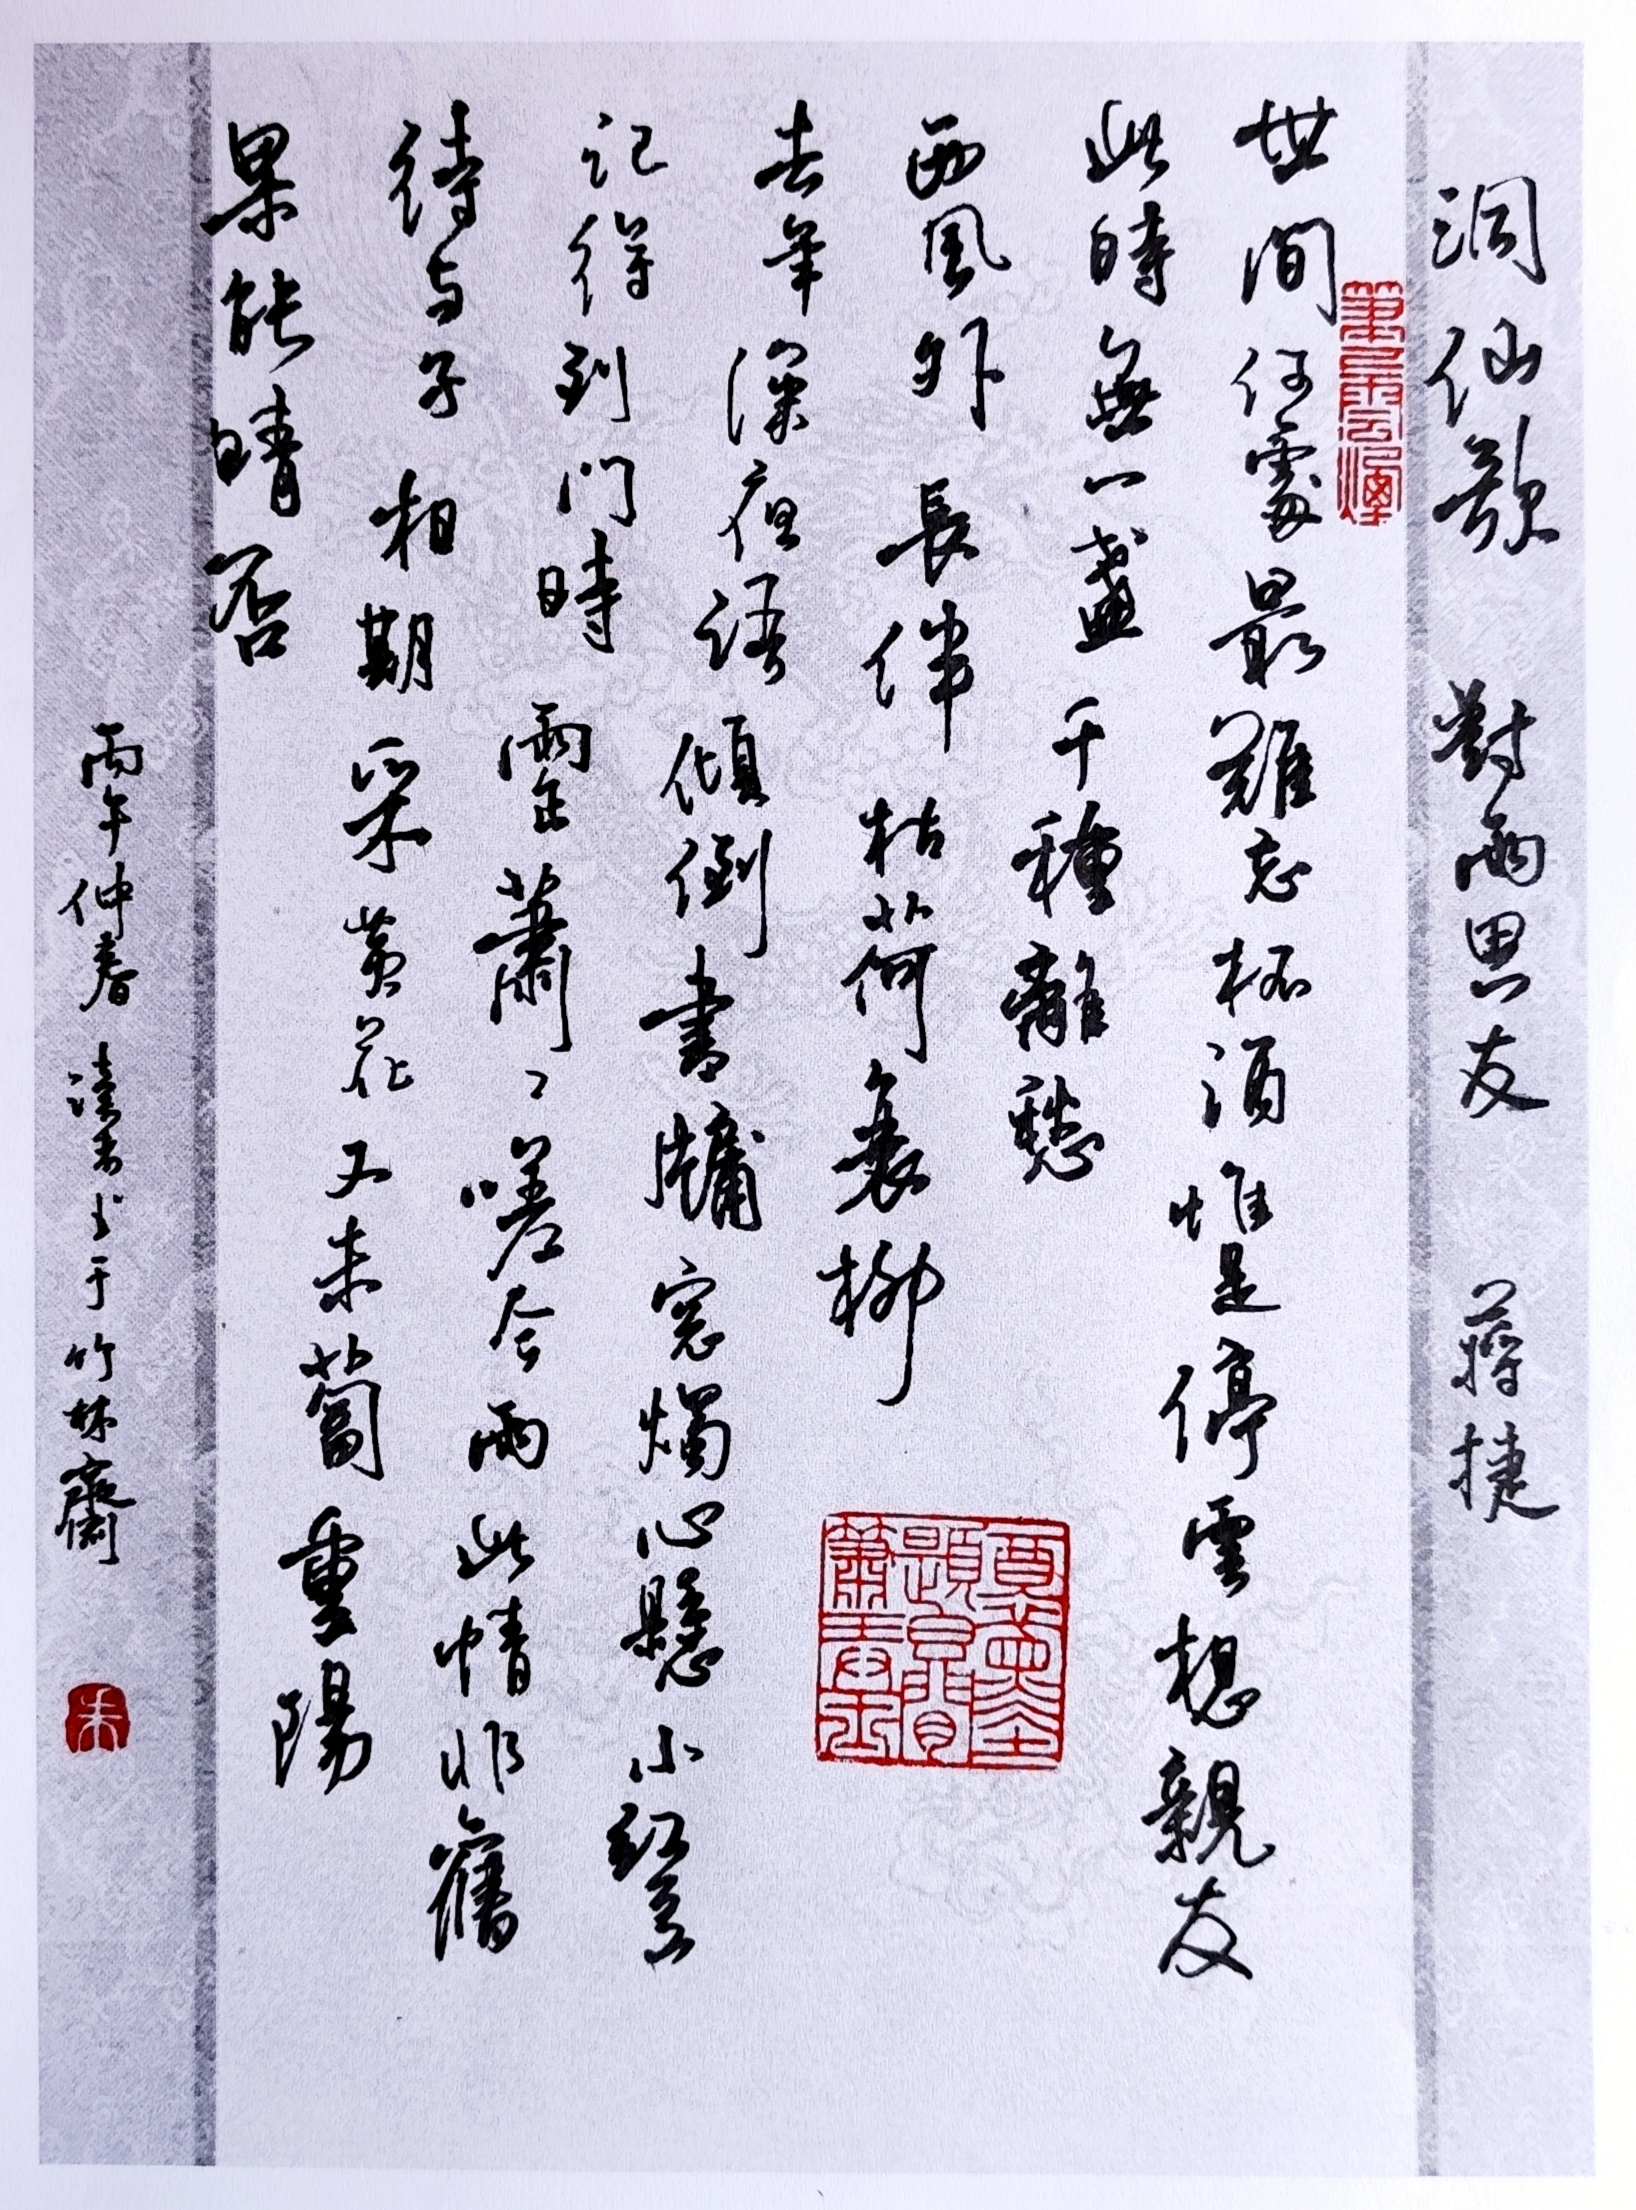 洞仙歌 對雨思友 蔣捷
世間何處最難忘杯酒惟是停雲想親友
此時無一盞千種離愁
西風外長伴枯荷衰柳
去年深夜語傾倒書牗窓燭心懸小紅豆
記得到門時雨正蕭〻嗟今雨此情非舊
待与子相期采黄花又未蔔重陽
果能晴否
丙午仲春 于竹林齋
朱